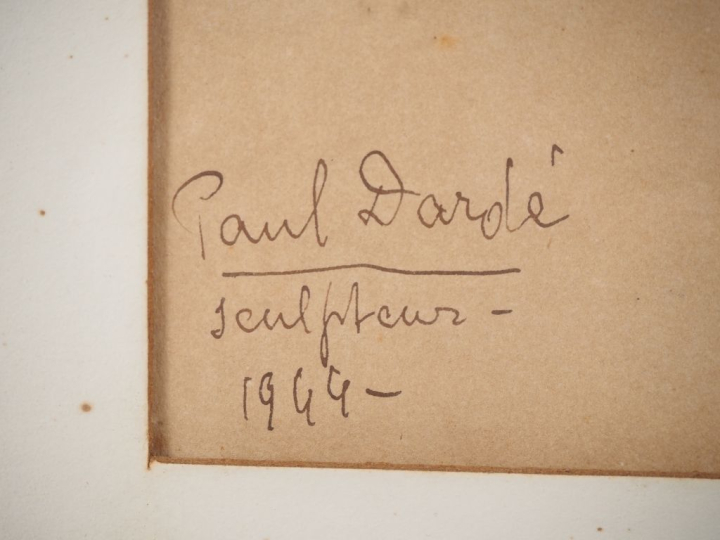 Paul Dardé
sculpteur -
1944 -